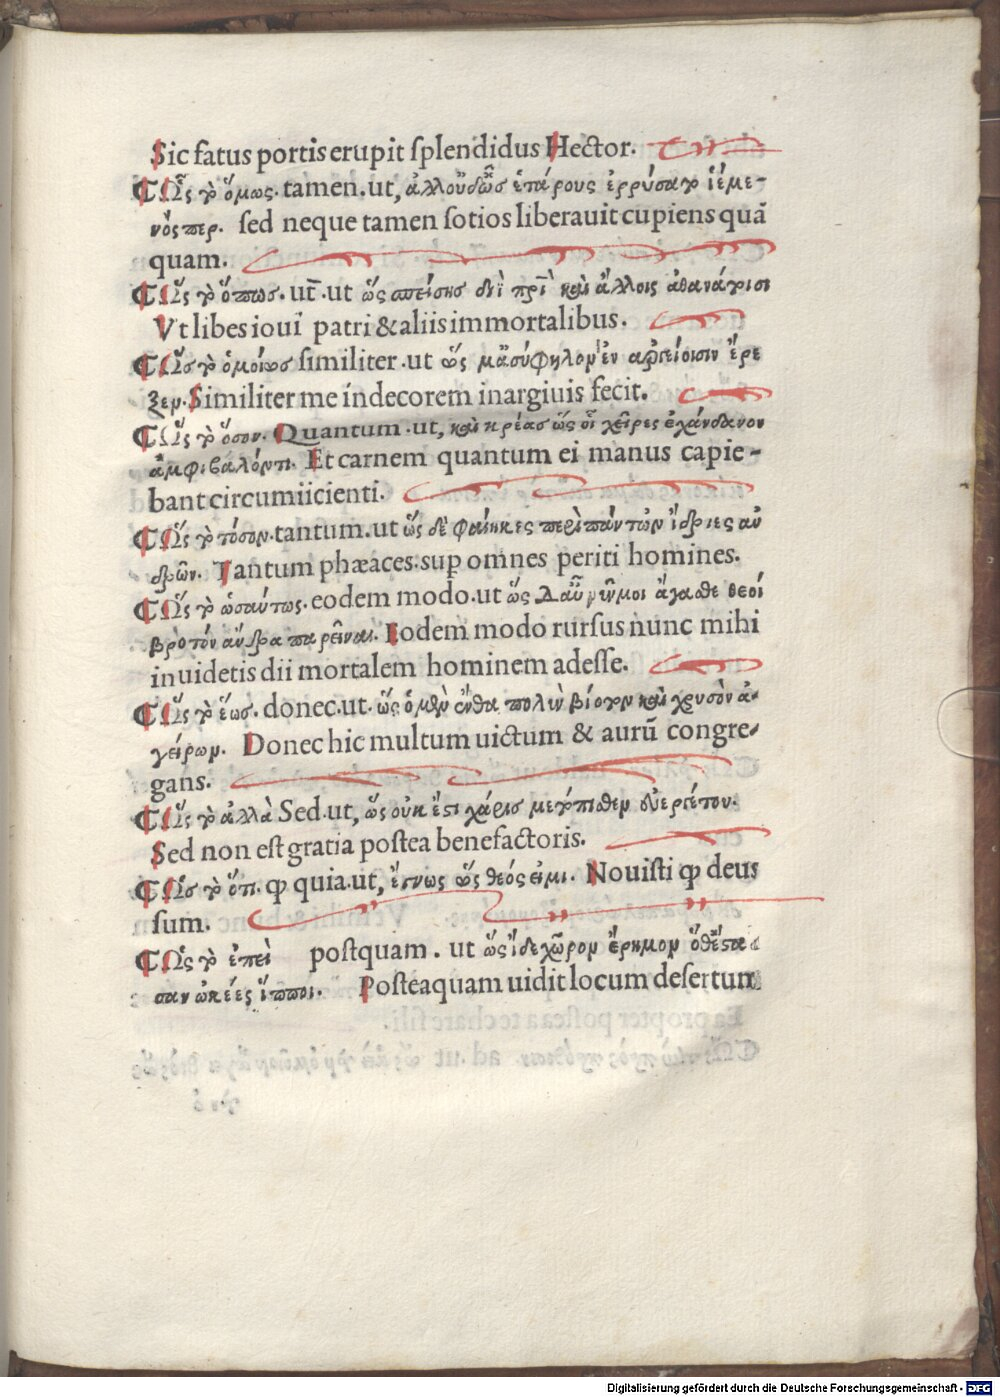 Sic fatus portis erupit ſplendidus Hector.
¶Ὣς γὸ ὅμως. tamen. ut, ἀλλ οὐδ ὧς ἑτάρους ἐρρύσατο ἱέμε-
νός περ. ſed neque tamen ſotios liberauit cupiens quā
quam.
¶Ὣς γὸ ὅπως. ut̄. ut ὥς σπείσῃς διῒ πρῒ καὶ ἄλλοις ἀθανάτοισι
Vt libes ioui patri & aliis immortalibus.
¶Ὣς γὸ ὁμοίως ſimiliter. ut ὥς μ ἀσύφηλον ἐν ἀργείοισιν ἔρε
ξεν. Similiter me indecorem inargiuis fecit.
¶Ὣς γὸ ὅσον. Quantum. ut, καὶ κρέας ὥς οἷ χεῖρες ἐχάνδανον
ἀμφιβαλόντι. Et carnem quantum ei manus capie-
bant circumiicienti.
¶Ὣς γὸ τόσον. tantum. ut ὥς δὲ φαίηκες περὶ πάντων ἴδριες ἀν
δρῶν. Tantum phæaces. sup omnes periti homines.
¶Ὣς γὸ ὡσαύτως. eodem modo. ut ὥς δ αὖ νῦν μοι ἄγασθε θεοί
βροτόν ἄνδρα παρεῖναι. Eodem modo rurſus nunc mihi
inuidetis dii mortalem hominem adeſſe.
¶Ὣς γὸ ἕως. donec. ut. ὥς ὁ μὲν ἔνθα πολὺν βίοτον καὶ χρυσὸν ἀ-
γείρων. Donec hic multum uictum & aurū congre-
gans.
¶Ὣς γὸ ἀλλὰ Sed. ut, ὥς οὐκ ἔστι χάρις μετόπισθεν εὐεργέτων.
Sed non eſt gratia poſtea benefactoris.
¶Ὣς γὸ ὅτι. ꝙ quia. ut, ἔγνως ὥς θεός εἰμι. Nouiſti ꝙ deus
ſum.
¶Ὣς γὸ ἐπεὶ poſtquam. ut ὥς ἴδε χῶρον ἔρημον ὅθ ἔστα
σαν ὠκέες ἵπποι. Poſteaquam uidit locum deſertum